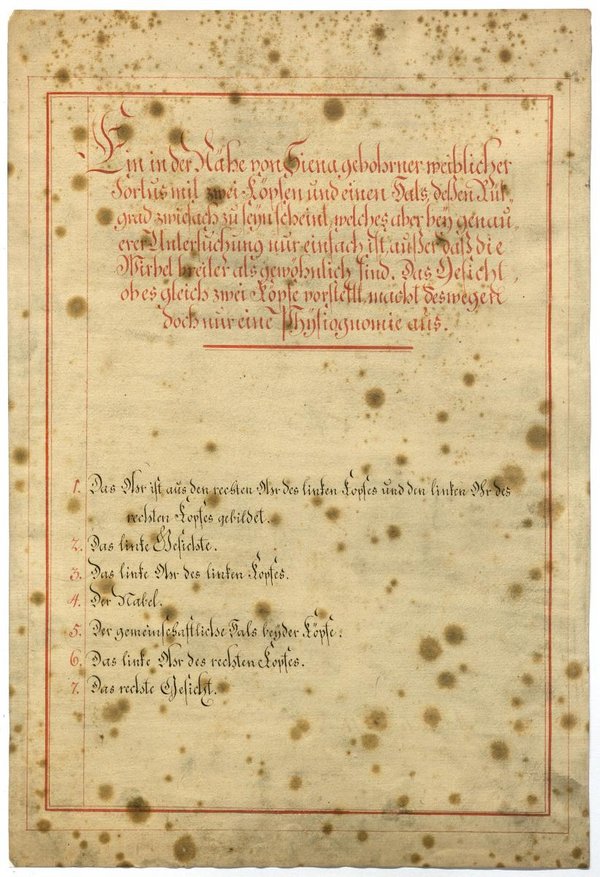 Ein in der Nähe von Siena gebohrner weiblicher
Foetus mit zwei Köpfen und einen Hals, deßen Rük-
grad zwiefach zu seyn scheint, welches aber bey genau-
erer Untersuchung nur einfach ist, außer daß die
Wirbel breiter als gewöhnlich sind. Das Gesicht,
ob es gleich zwei Köpfe vorstellt, macht deswegen
doch nur eine Physiognomie aus.
1. Das Ohr ist aus den rechten Ohr des linken Kopfes und den linken Ohr des
rechten Kopfes gebildet.
2. Das linke Gesichte.
3. Das linke Ohr des linken Kopfes.
4. Der Nabel.
5. Der gemeinschaftliche Hals beyder Köpfe.
6. Das linke Ohr des rechten Kopfes.
7. Das rechte Gesicht.